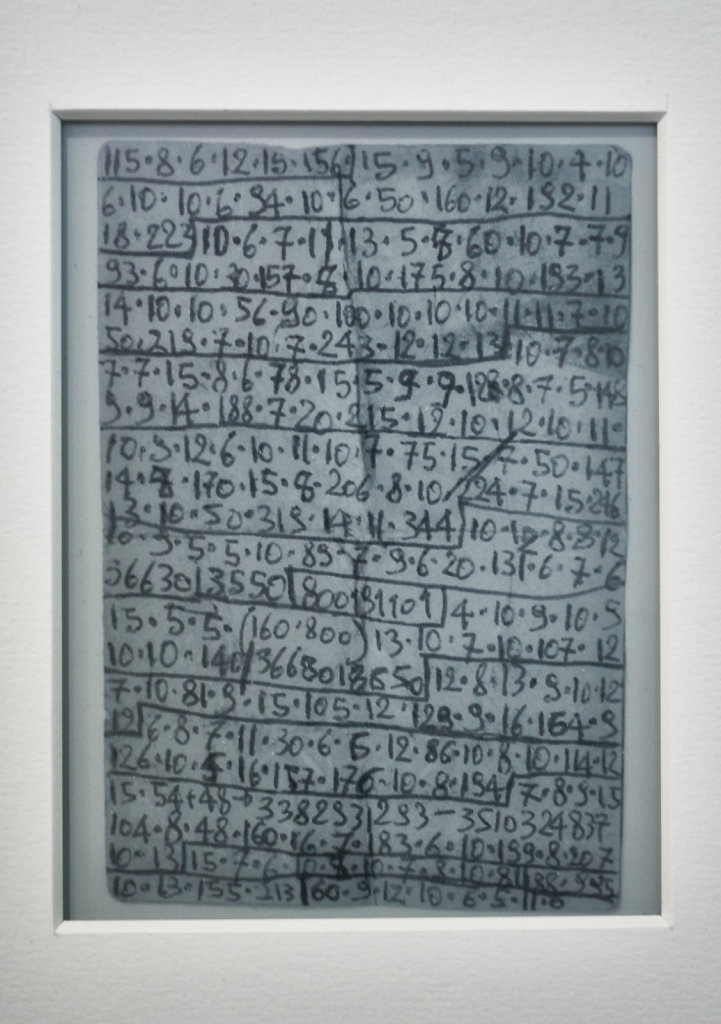 115·8·6·12·15·156·15·9·5·9·10·4·10
6·10·10·6·94·10·6·50·160·12·192·11
18·223 10·6·7·11·13·5·8·60·10·7·7·9
93·6·10·30·157·8·10·175·8·10·193·13
14·10·10·56·90·100·10·10·10·11·11·7·10
50·219·7·10·7·243·12·12·13 10·7·8·10
7·7·15·8·6·78·15·5·9·9·128·8·7·5·148
9·9·14·188·7·20·215·12·10·12·10·11·
10·9·12·6·10·11·10·7·75·15·7·50·147
14·8·170·15·8·206·8·10 224·7·15·246
13·10·50·319·14·11·344 10·12·8·8·12
10·9·5·5·10·89·7·9·6·20·131·6·7·6
36630 13550 800 31101 4·10·9·10·5
15·5·5·(160·800) 13·10·7·10·107·12
10·10·140 36630 13550 12·8·13·9·10·12
7·10·81·9·15·105·12·129·9·16·154·9
19 6·8·7·11·30·6·5·12·86·10·8·10·114·12
126·10·5·16·157·176·10·8·194 7·8·9·15
15·54+48→338293 293–3510324837
104·8·48·160·16·7·183·6·10·199·8·207
10·13 15·7·6·10·8·10·7·8·10·8
10·13·155·213 60·9·12·10·6·5·11·6